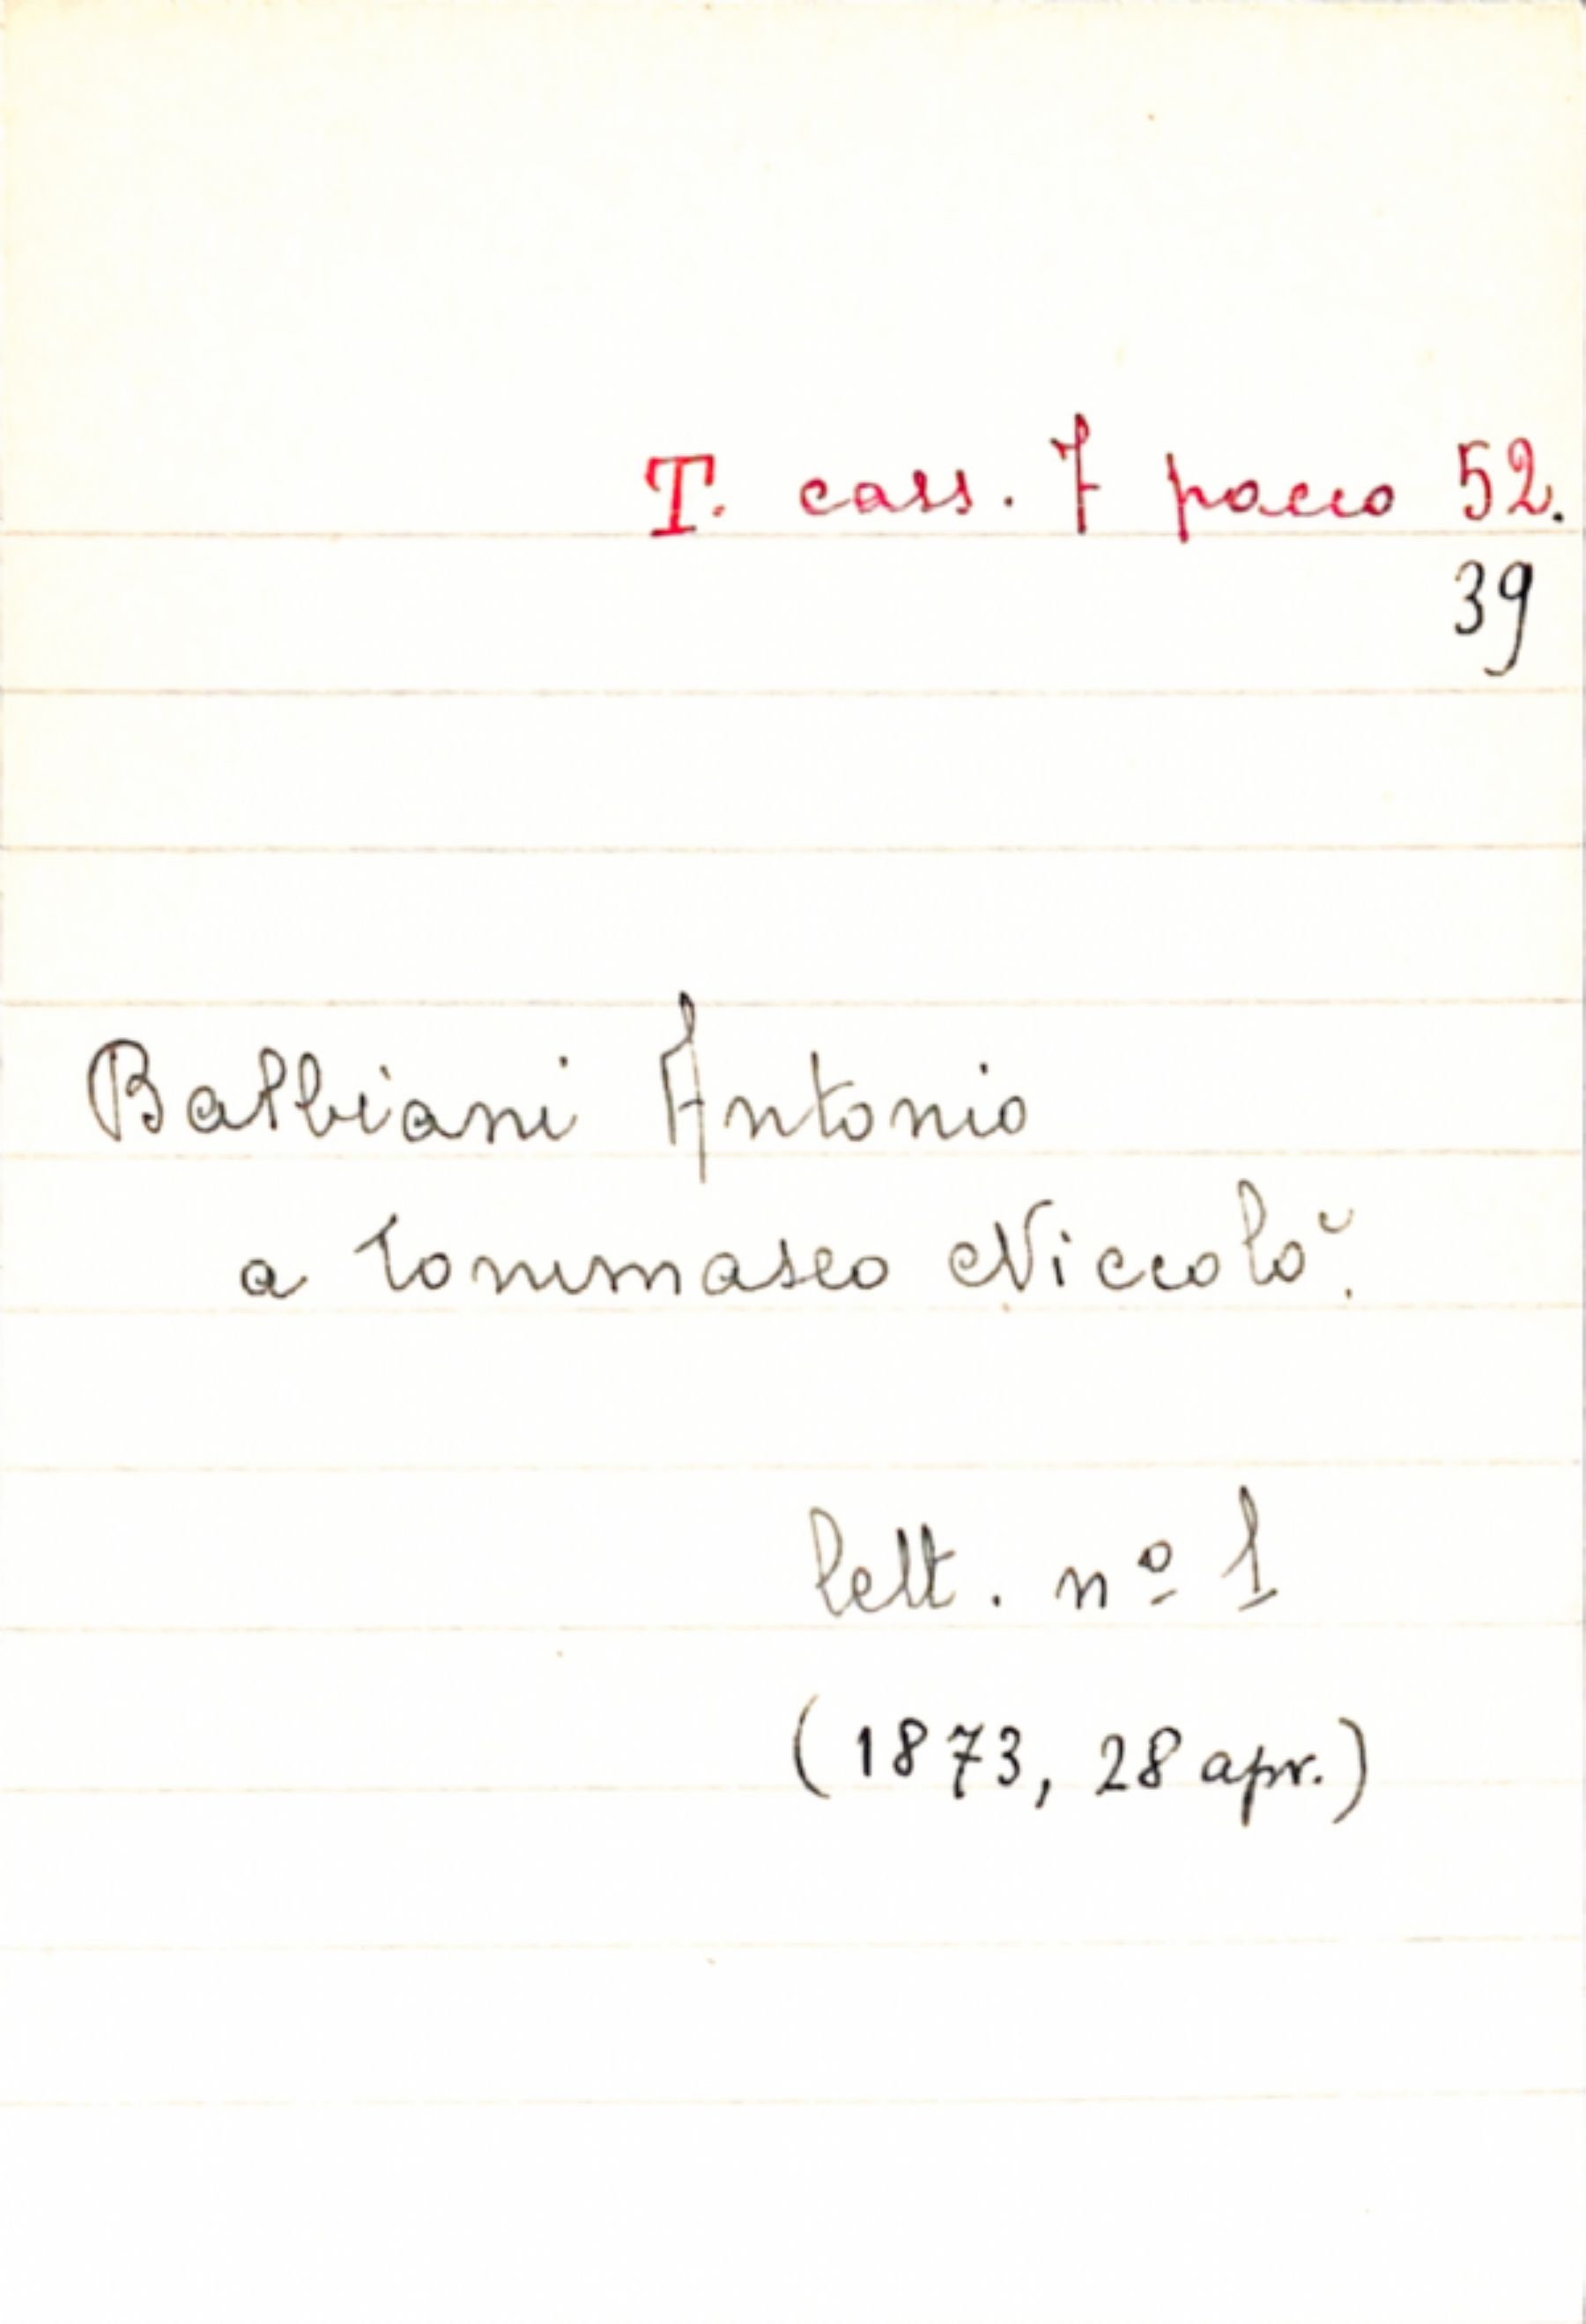 T. cass. 7 pacco 52.
39
Balbiani Antonio
a Tommaseo Niccolò.
lett. nº 1
(1873, 28 apr.)